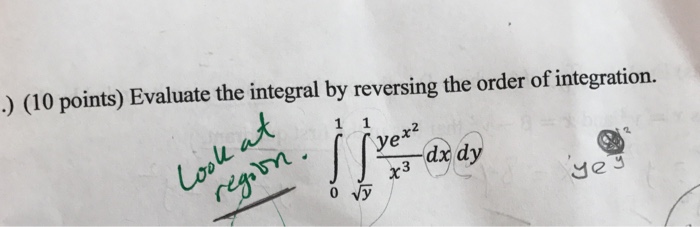 .) (10 points) Evaluate the integral by reversing the order of integration.
Look at
region.
∫₀¹ ∫_√y¹ ye^x² / x³ dx dy
ye^y